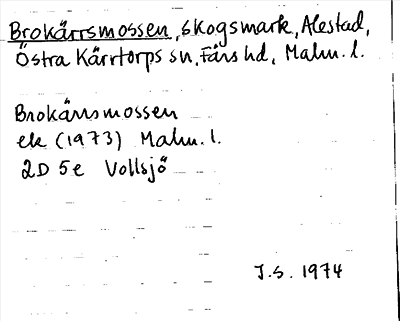 Brokärrsmossen, skogsmark, Alestad,
Östra Kärrtorps sn, Färs hd, Malm. l.
Brokärrsmossen
ek (1973) Malm. l.
2D 5e Vollsjö
J.S. 1974